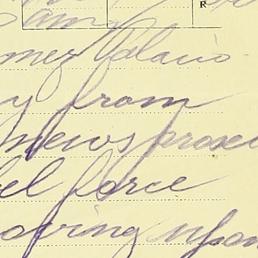 R
mez Valacio
y from
news proxe
el force
oving upon